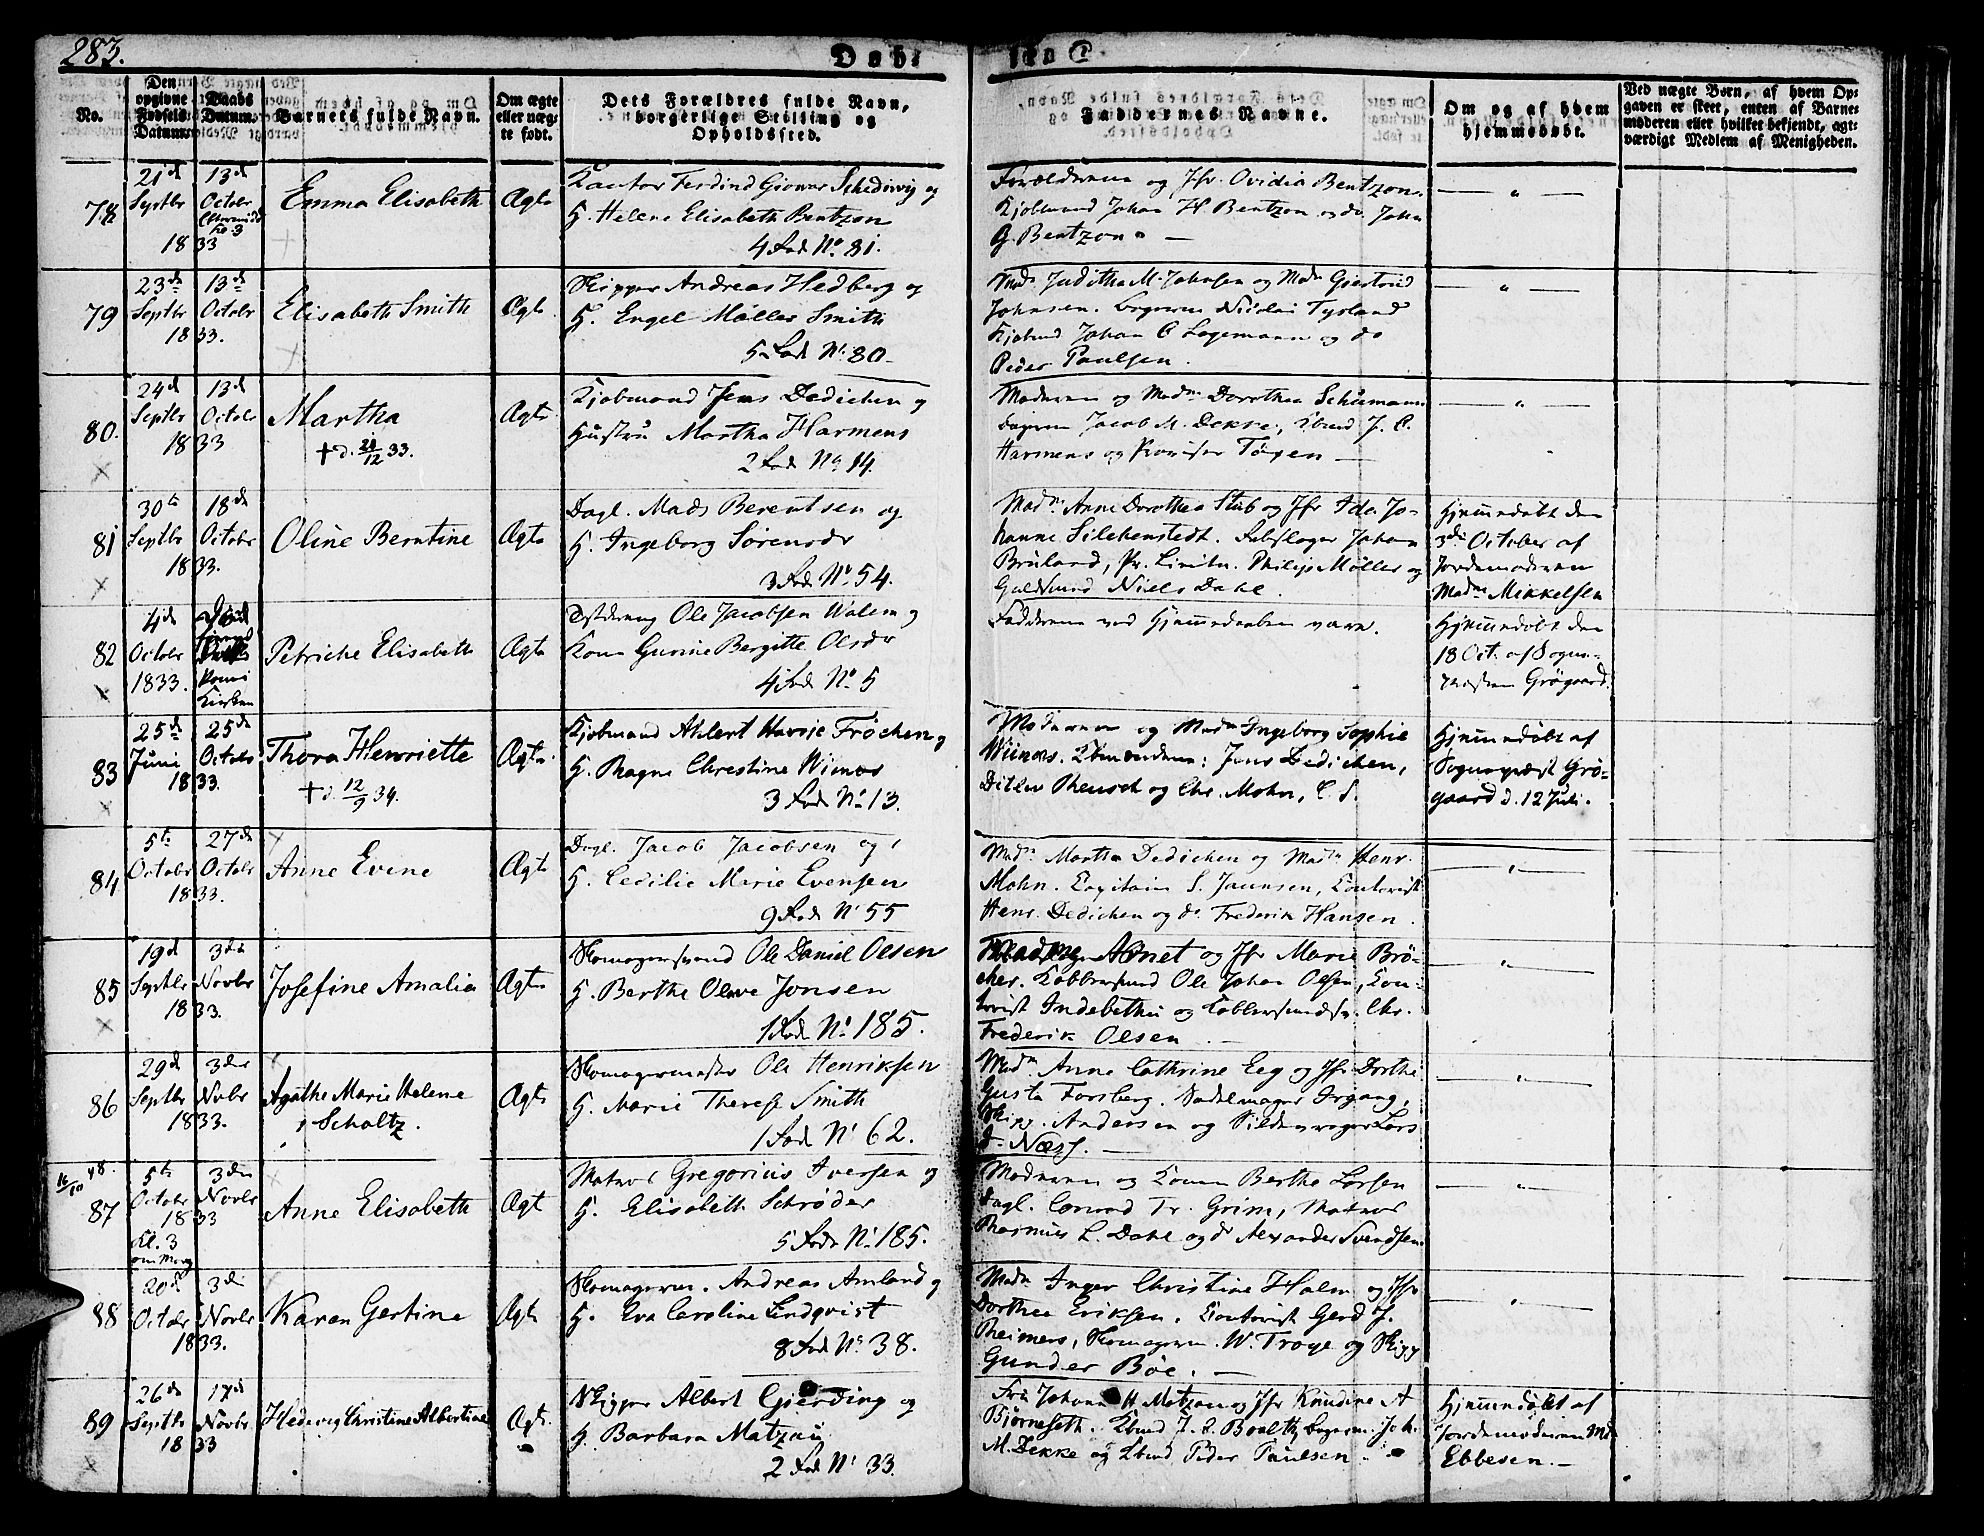 283.
Døbte
No.
Den opgivne Fødsels Datum.
Daabs Datum.
Barnets fulde Navn.
Om ægte eller uægte født.
Dets Forældres fulde Navn, borgerlige Stilling og Opholdssted.
Faddernes Navne.
Om og af hvem hjemmedøbt.
Ved uægte Børn, af hvem Opgaven er skeet, enten af Barnemoderen eller hvilket bekjendt, agtværdigt Medlem af Menigheden.
78
21d Septbr 1833
13d Octobr
Emma Elisabeth
Ægte
Kantor Ferdind Giovar Schediwy og
H. Helene Elisabeth Bentzon
4 Rode No. 81.
Forældrene og Jfr. Ovidia Bentzon.
Kjøbmænd Johan H Bentzon og do John
G. Bentzon
79
23de Septbr 1833.
13de Octobr
Elisabeth Smith
Ægte
Skipper Andreas Hedberg og
H. Engel Møller Smith
5 Rode No. 80
Mad. Juditha M. Johnsen og Mad. Giertrud
Johnsen. Nicolai Tysland
Kjøbmd Johan C Lagemann og do
Peder Paulsen.
80.
24d Septbr 1833
13d Octobr
Martha
† d. 21/12 33.
Ægte
Kjøbmand Jens Dedichen og
Hustru Martha Harmens
2 Rode No 14.
Moderen og Madm Dorothea Schumann
Jacob M. Dekke, Kbmd J. C.
Harmens og Tøxen
81
30te Septbr 1833.
18de Octobr
Oline Berntine
Ægte
Dagl. Mads Berentsen og
H. Ingeborg Sørensdr
3 Rode No. 54.
Madm Anne Dorothea Stub og Jfr Ida Johanne
Silchenstedt. Johan
Bruland, Pr. Lieutn. Philip Møller og
Guldsmd Niels Dahl.
Hjemmedøbt den
3die October af
Jordemoderen
Madm Mikkelsen
82
4de October 1833.
Kirken
Petriche Elisabeth
Ægte
Ole Jacobsen Walem og
Kone Gurine Bergitte Olsdr
4 Rode No. 5
Fadderne ved Hjemmedaaben vare.
Hjemmedøbt den
18 Oct. af Sogne-
præsten Grøgaard.
83
25de Juni 1833.
25de Octobr
Thora Henriette
† d 12/9 34.
Ægte
Kjøbmand Ahlert Havsie Frøchen og
H. Ragne Christine Wiinæs
3 Rode No. 13.
Moderen og Madm Ingeborg Sophie
Wiinæs. Kbmændene: Jens Dedichen,
Ditlev Rensch og Chr. Mohn, C. S.
Hjemmedøbt af
Sognepræst Grø-
gaard d. 12 Juli.
84
5te October 1833.
27de Octobr
Anne Evine
Ægte
Dagl. Jacob Jacobsen og
H. Cecilie Marie Evensen
9 Rode No 55
Madm Martha Dedichen og Madm Henr.
Mohn. Capitain S. Jaunsen, Contorist
Henr. Dedichen og do Frederik Hansen.
85
19d Septbr 1833.
3die Novbr
Josefine Amalia
Ægte
Skomagersvend Ole Daniel Olsen
H. Berthe Olave Jonsen
1 Rode No. 185.
Madme Abnet og Jfr Marie Brø-
cher. Kobbersmed Ole Johan Olsen, Con-
torist Indebethu og Kobbersmedsv. Chr.
Frederik Olsen.
86
29d Septbr 1833.
3die Novbr
Agathe Marie Helene
Scholtz.
Ægte
Skomagermester Ole Henriksen
H. Marie Therese Smith
1 Rode No 62.
Madm Anne Cathrine Eeg og Jfr Dorthe
Gusta Forsberg. Sadelmager Irgang,
Skipp. Andersen og Sildevrager Lars
d. Næss.
87
16/10 48.
5te October 1833
Kl. 3 om Morg
3die Novbr
Anne Elisabeth
Ægte
Matros Gregorius Iversen og
H. Elisabeth Schrøder
5 Rode No. 185.
Moderen og Konen Berthe Larsen
Dagl. Conrad Tr. Grim, Matros
Rasmus L. Dahl og do Alexander Svendsen
88
20d October 1833.
3die Novbr
Karen Gertine
Ægte
Skomagersv. Andreas Amland og
H. Eva Caroline Lindqvist
8 Rode No. 38.
Madm Inger Christine Holm og Jfr
Dorthea Eriksen. Contorist Gerd J.
Reimers, Skomagersv. W. Troye og Skipp
Gunder Bøe.
89
26de Septbr 1833
17de Novbr
Hedevig Christine Albertine
Ægte
Skipper Albert Gjerding og
H. Barbara Matzau
2 Rode No 33.
Fru Johanne H Matzau og Jfr Knudine A
Bjørneseth. Kbmd J. S. Booth, Joh.
M. Dekke og Kbmd Peder Paulsen.
Hjemmedøbt af
Jordemoderen Md
Ebbesen.